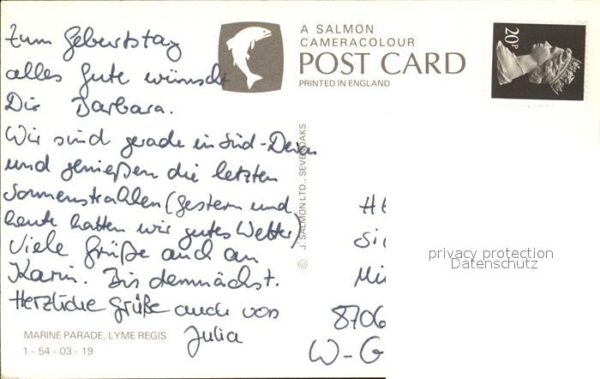 Zum Geburtstag
alles Gute wünscht
Dir Barbara.
Wir sind gerade in Süd-Devon
und genießen die letzten
Sonnenstrahlen (gestern und
heute hatten wir gutes Wetter)
Viele Grüße auch an
Karin. Bis demnächst.
Herzliche Grüße auch von
Julia
MARINE PARADE, LYME REGIS
1 - 54 - 03 - 19
A SALMON
CAMERACOLOUR
POST CARD
PRINTED IN ENGLAND
© J. SALMON LTD., SEVENOAKS
20P
privacy protection
Datenschutz
8706
W-G